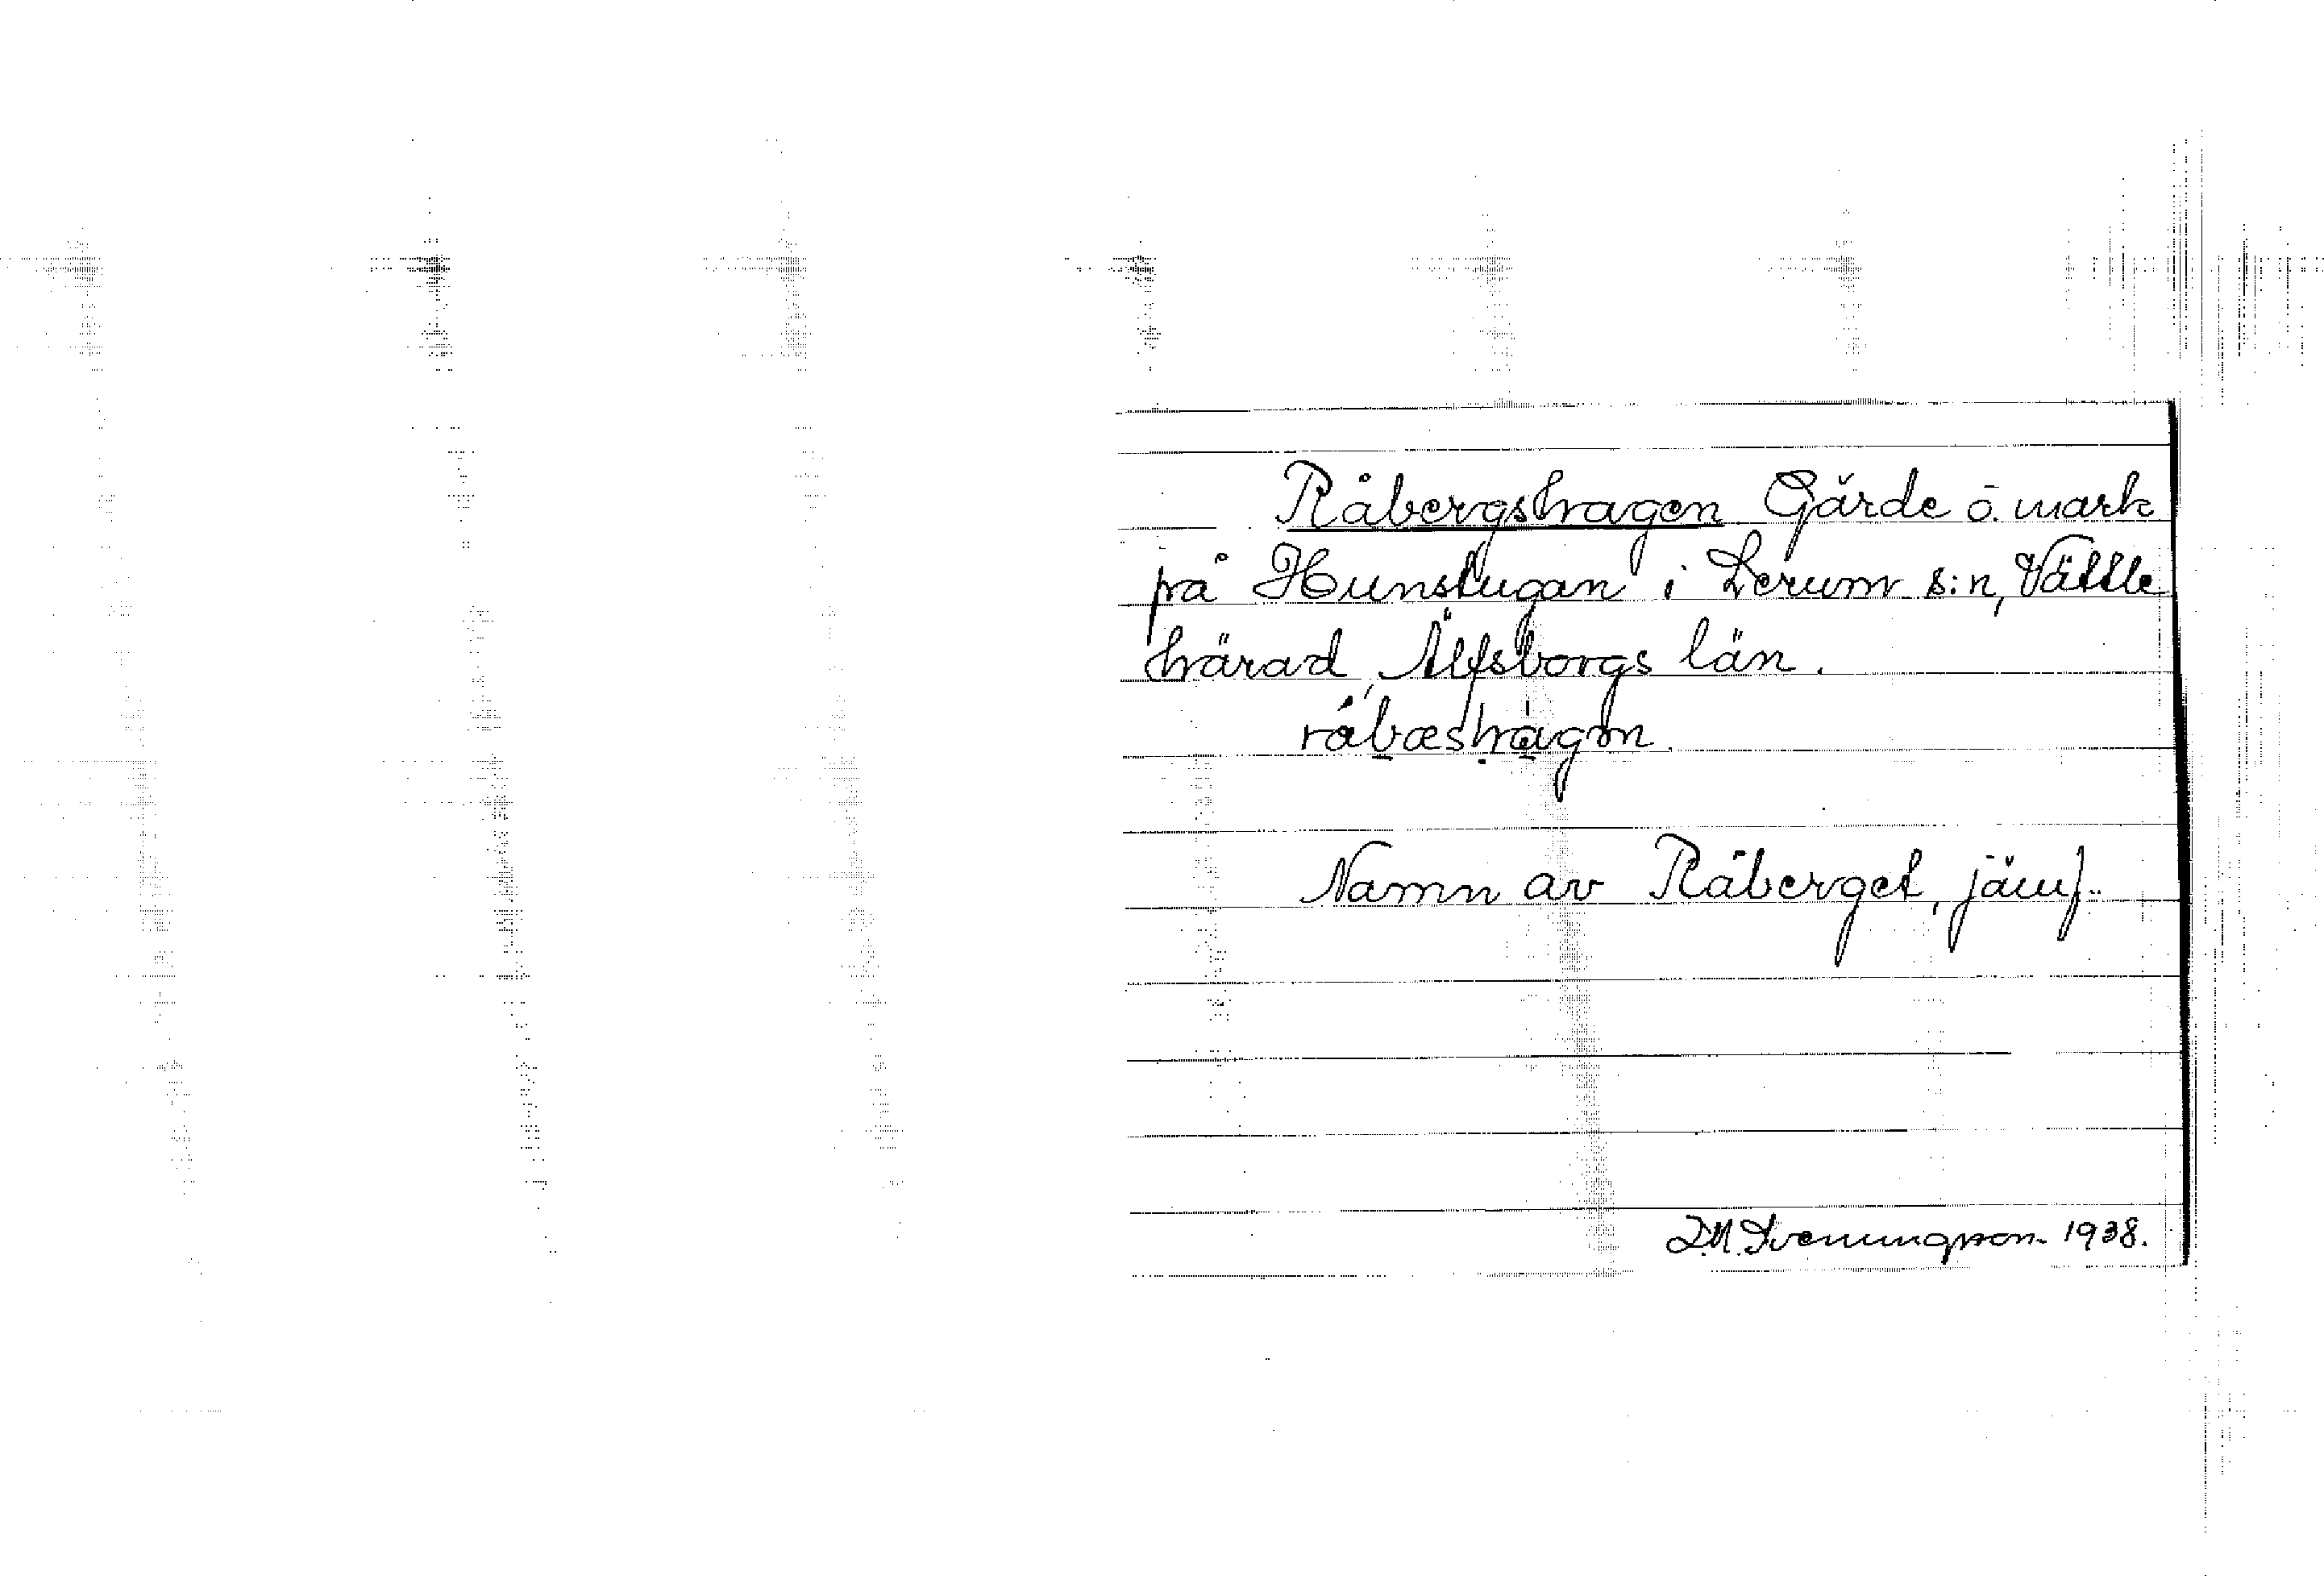 Råbergshagen Gärde o. mark
på Hunstugan i Lerum s:n, Vättle
härad, Älfsborgs län.
råbæshagən
Namn av Råberget, jämf.
D.M. Svenungsson 1938.